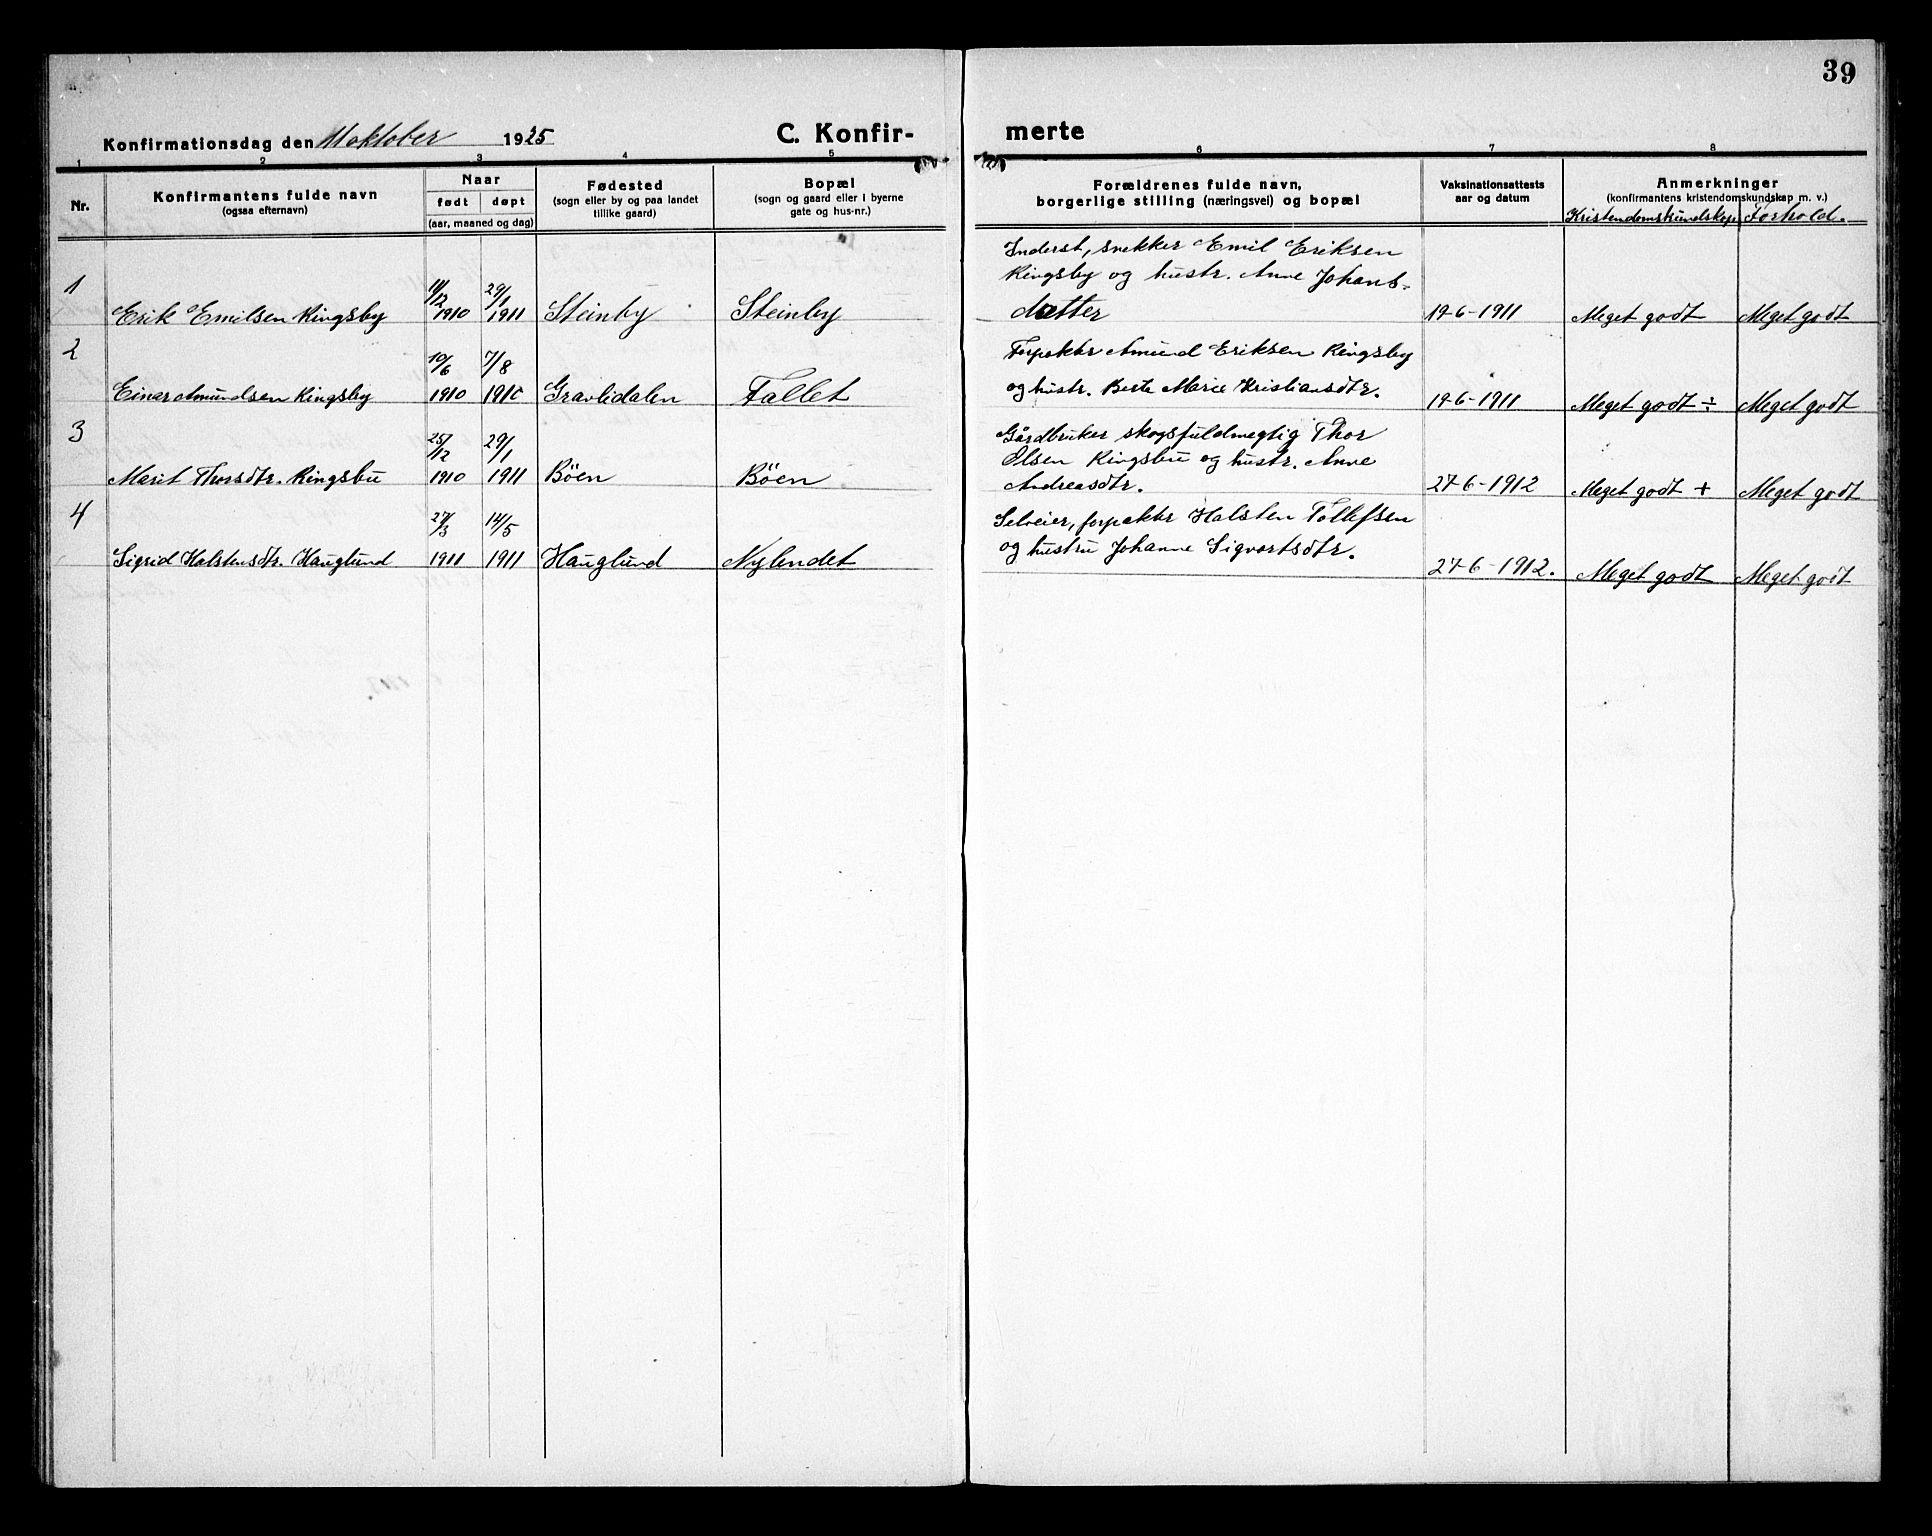 39
Konfirmationsdag den 11 oktober 1925
C. Konfir-
merte
1 2 3 4 5 6 7 8
Nr.
Konfirmantens fulde navn
(ogsaa efternavn)
Naar
født døpt
(aar, maaned og dag)
Fødested
(sogn eller by og paa landet
tillike gaard)
Bopæl
(sogn og gaard eller i byerne
gate og hus-nr.)
Forældrenes fulde navn,
borgerlige stilling (næringsvei) og bopæl
Vaksinationsattests
aar og datum
Anmerkninger
(konfirmantens kristendomskundskap m. v.)
Kristendomskundskap Forhold.
Inderst, snekker Emil Eriksen
1 /12 29/1 Ringsby og hustr. Anne Johans-
Erik Emilsen Ringsby 1910 1911 Steinby Steinby datter 19-6-1911 Meget godt Meget godt
2 10/6 7/8 Forpakter Amund Eriksen Ringsby
Einar Amundsen Ringsby 1910 1910 Gravlidalen Fallet og hustr. Berte Marie Kristiansdtr. 19-6-1911 Meget godt ÷ Meget godt
3 25/12 29/1 Gårdbruker skogsfuldmegtig Thor
Olsen Ringsbu og hustr. Anne
Marit Thorsdtr. Ringsbu 1910 1911 Böen Böen Andreasdtr. 27-6-1912 Meget godt + Meget godt
4 27/3 14/5 Selveier, forpakter Halsten Tollefsen
Sigrid Halstensdtr. Hauglund 1911 1911 Hauglund Nylendet og hustru Johanne Sigvartsdtr. 27-6-1912. Meget godt Meget godt